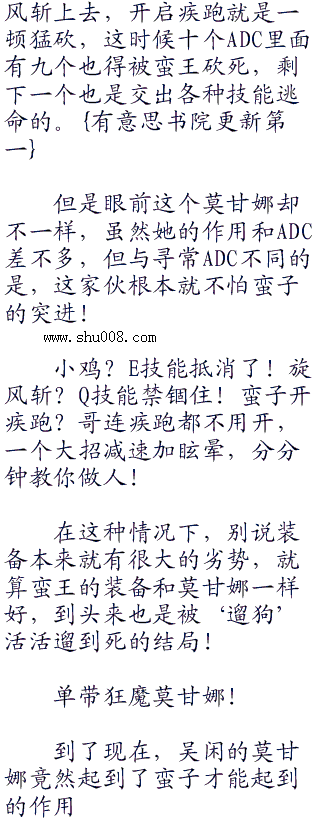 风斩上去，开启疾跑就是一
顿猛砍，这时候十个ADC里面
有九个也得被蛮王砍死，剩
下一个也是交出各种技能逃
命的。{有意思书院更新第
一}
但是眼前这个莫甘娜却
不一样，虽然她的作用和ADC
差不多，但与寻常ADC不同的
是，这家伙根本就不怕蛮子
的突进！
www.shu008.com
小鸡？E技能抵消了！旋
风斩？Q技能禁锢住！蛮子开
疾跑？哥连疾跑都不用开，
一个大招减速加眩晕，分分
钟教你做人！
在这种情况下，别说装
备本来就有很大的劣势，就
算蛮王的装备和莫甘娜一样
好，到头来也是被‘遛狗’
活活遛到死的结局！
单带狂魔莫甘娜！
到了现在，吴闲的莫甘
娜竟然起到了蛮子才能起到
的作用